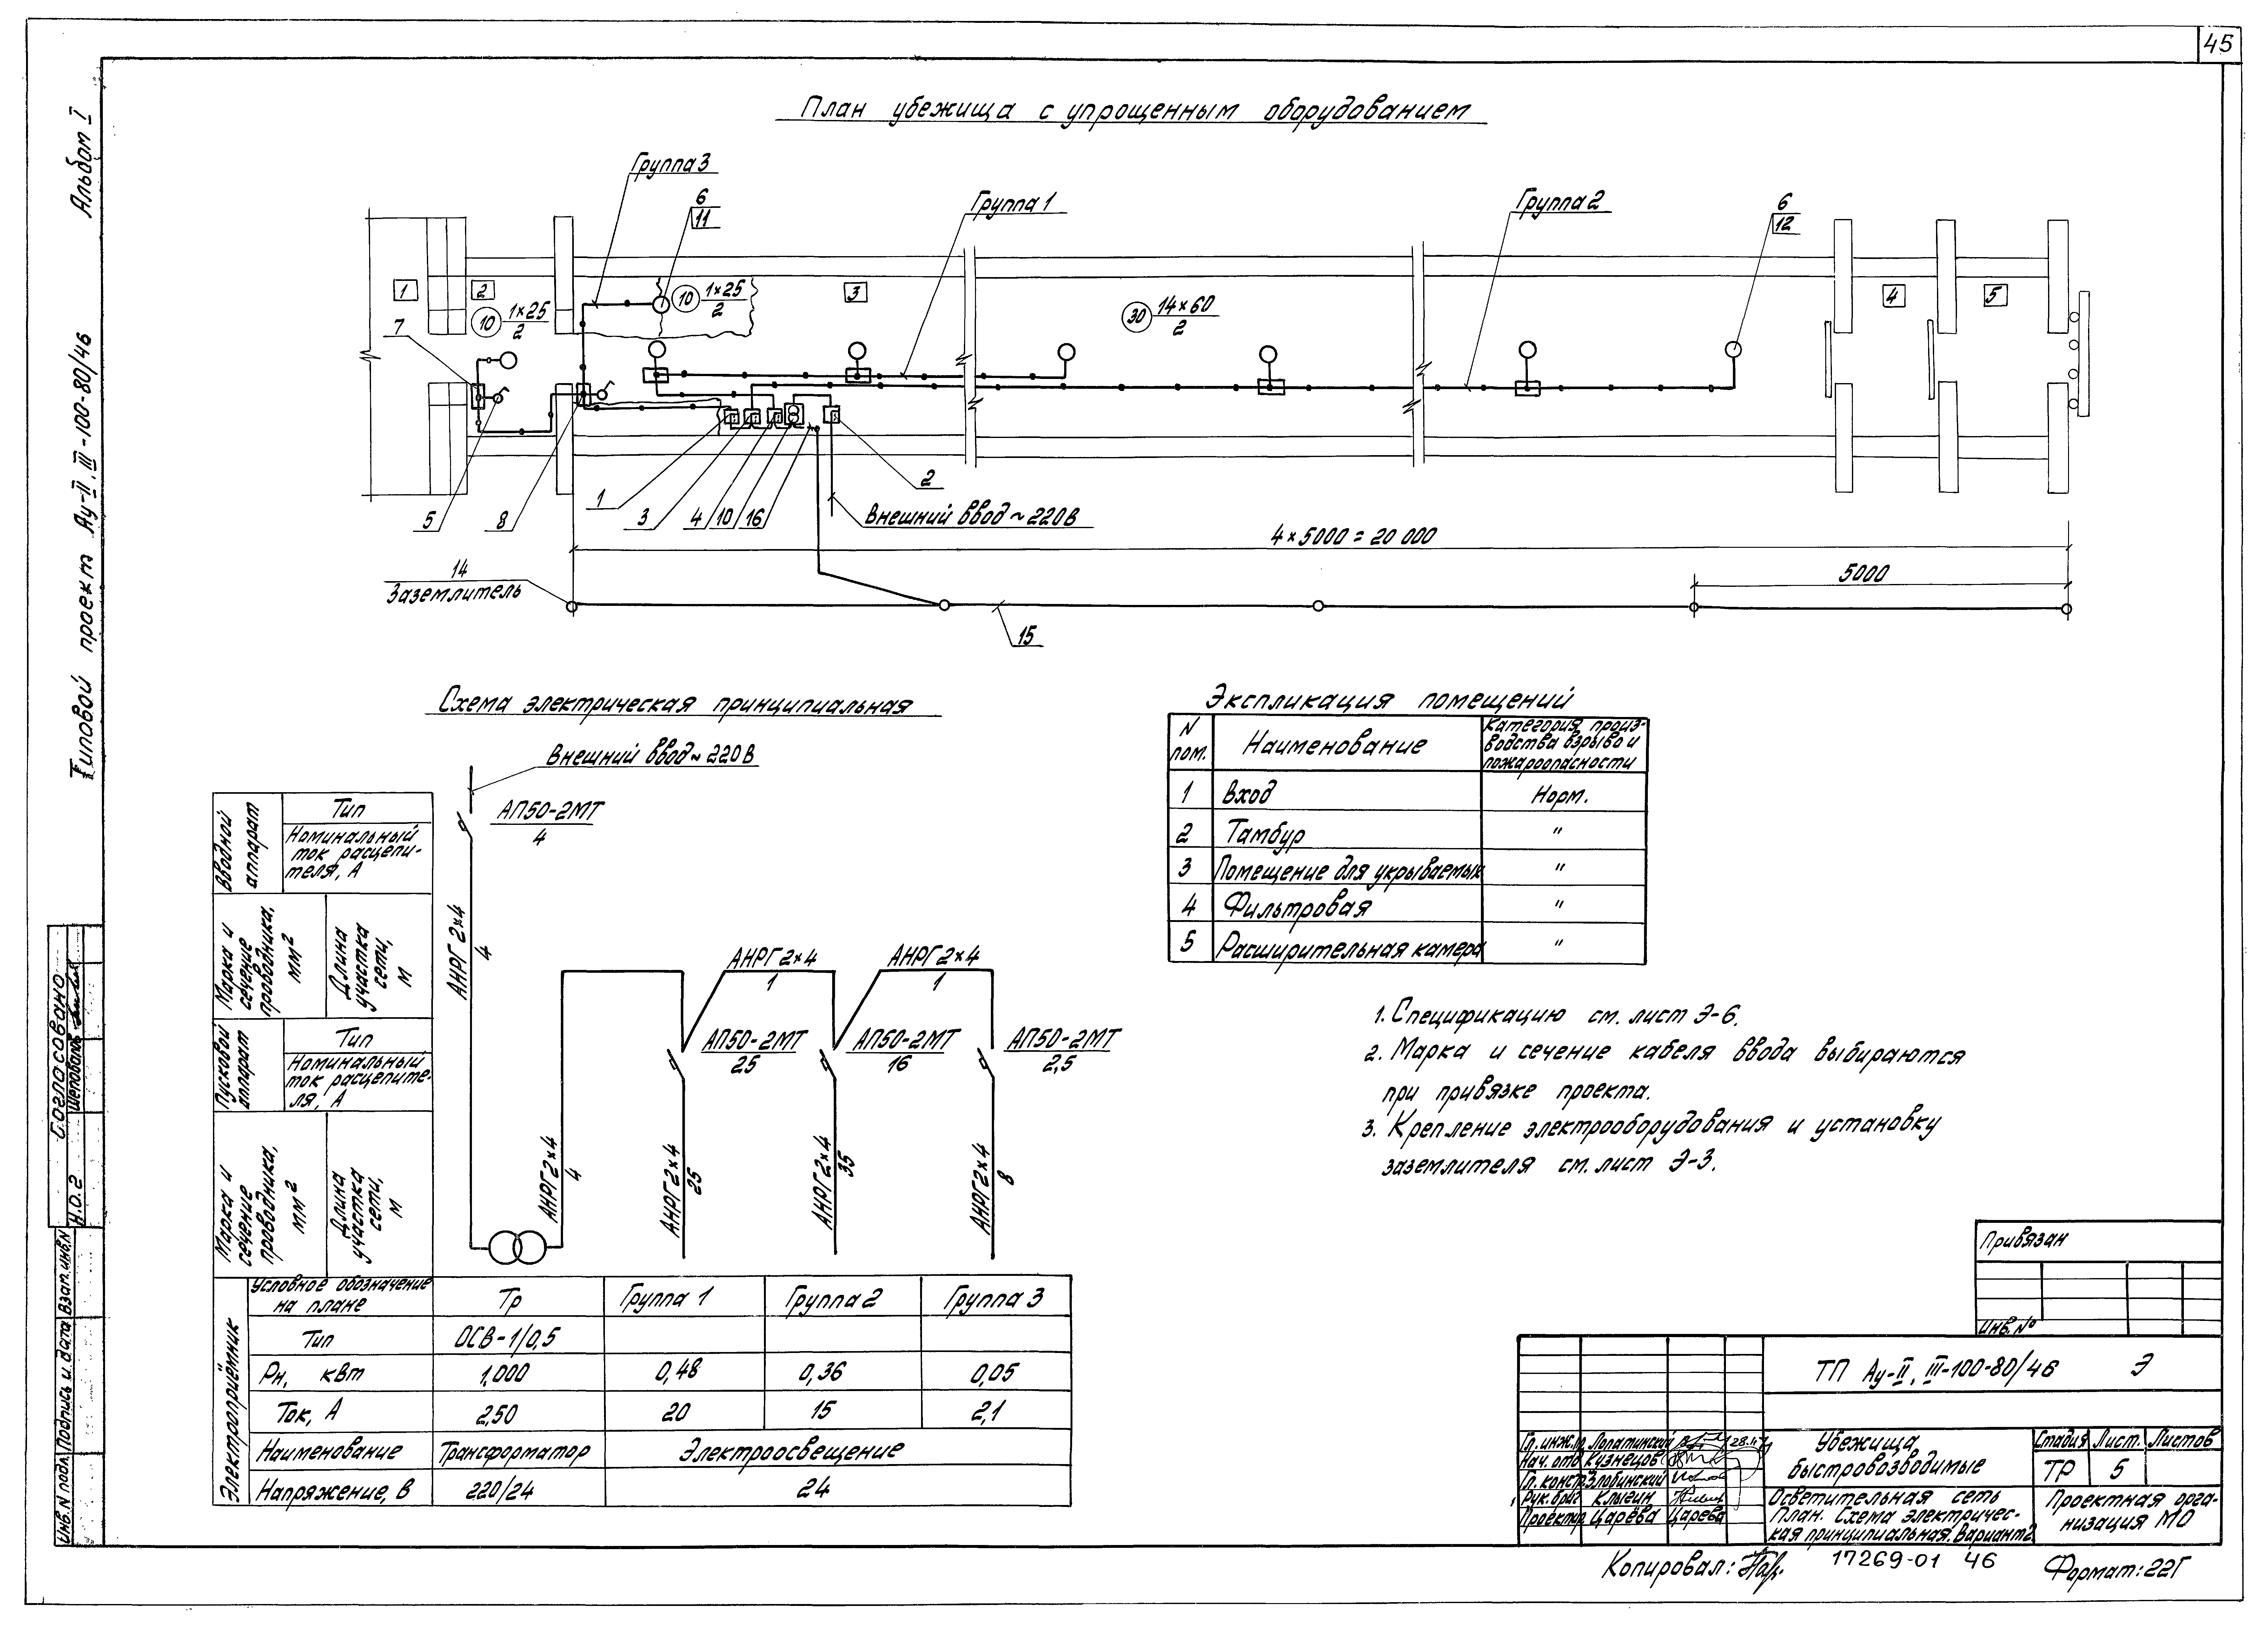 45
Альбом I
Типовой проект Ау-II, III-100-80/46
План убежища с упрощенным оборудованием
Группа 3
6
11
Группа 1
Группа 2
6
12
1
2
10 1×25
2
10 1×25
2
3
30 14×60
2
4
5
7
5
8
1
3
4
10
16
2
Внешний ввод ~ 220В
4×5000 = 20 000
14
Заземлитель
5000
15
Схема электрическая принципиальная
Внешний ввод ~ 220В
Вводной аппарат
Тип
Номинальный ток расцепи-
теля, А
Марка и сечение проводника, мм2
Длина участка сети, м
Пусковой аппарат
Тип
Номинальный ток расцепите-
ля, А
Марка и сечение проводника, мм2
Длина участка сети, м
АП50-2МТ
4
АНРГ 2×4
4
АНРГ 2×4
1
АНРГ 2×4
1
АП50-2МТ
25
АП50-2МТ
16
АП50-2МТ
2,5
АНРГ 2×4
4
АНРГ 2×4
25
АНРГ 2×4
35
АНРГ 2×4
8
Электроприёмник
Условное обозначение на плане Тр Группа 1 Группа 2 Группа 3
Тип ОСВ-1/0,5
Рн, квт 1,000 0,48 0,36 0,05
Ток, А 2,50 20 15 2,1
Наименование Трансформатор Электроосвещение
Напряжение, В 220/24 24
Экспликация помещений
N пом. Наименование Категория произ-
водства взрыво и
пожароопасности
1 Вход Норм.
2 Тамбур "
3 Помещение для укрываемых "
4 Фильтровая "
5 Расширительная камера "
1. Спецификацию см. лист Э-6.
2. Марка и сечение кабеля ввода выбираются
при привязке проекта.
3. Крепление электрооборудования и установку
заземлителя см. лист Э-3.
Привязан
Инв. №
ТП Ау-II, III-100-80/46 Э
Гл. инж. пр. Лопатинский 28.
Нач. отд. Кузнецов
Гл. констр. Злобинский
Рук. бриг Клыгин
Проектир Царёва Царева
Убежища
быстровозводимые
Стадия Лист. Листов
ТР 5
Осветительная сеть
План. Схема электричес-
кая принципиальная. Вариант 2
Проектная орга-
низация МО
Копировал:
17269-01 46
Формат: 22Г
Согласовано
Н.О.2 Шеповалов
Взап. инв. N
Подпись и дата
Инв. N подл.